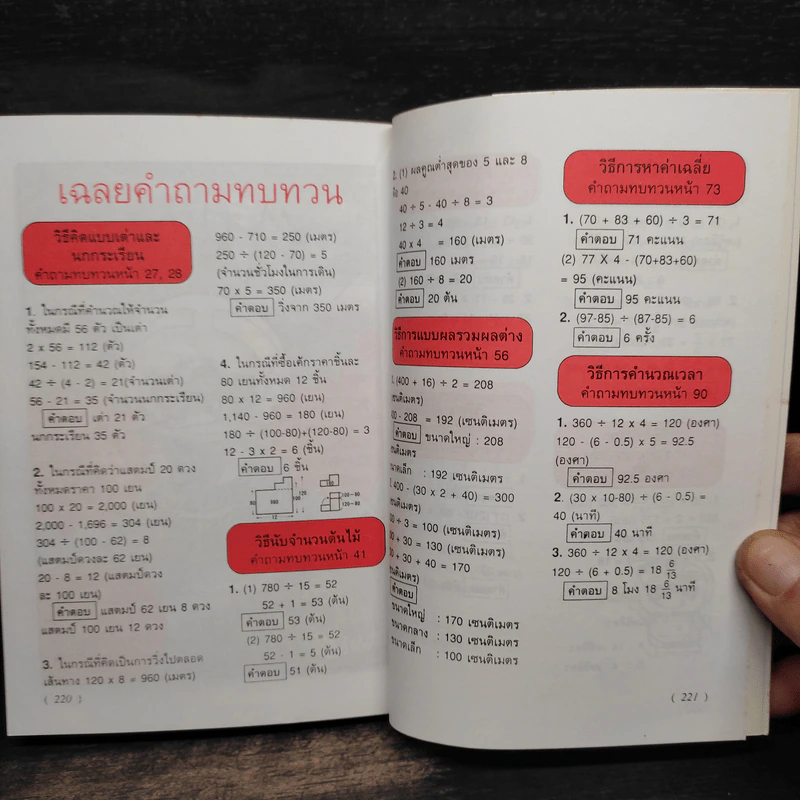 เฉลยคำถามทบทวน
วิธีคิดแบบเต่าและ
นกกระเรียน
คำถามทบทวนหน้า 27, 28
1. ในกรณีที่คำนวณให้จำนวน
ทั้งหมดมี 56 ตัว เป็นเต่า
2 x 56 = 112 (ตัว)
154 - 112 = 42 (ตัว)
42 ÷ (4 - 2) = 21(จำนวนเต่า)
56 - 21 = 35 (จำนวนนกกระเรียน)
คำตอบ เต่า 21 ตัว
นกกระเรียน 35 ตัว
2. ในกรณีที่คิดว่าแสตมป์ 20 ดวง
ทั้งหมดราคา 100 เยน
100 x 20 = 2,000 (เยน)
2,000 - 1,696 = 304 (เยน)
304 ÷ (100 - 62) = 8
(แสตมป์ดวงละ 62 เยน)
20 - 8 = 12 (แสตมป์ดวง
ละ 100 เยน)
คำตอบ แสตมป์ 62 เยน 8 ดวง
แสตมป์ 100 เยน 12 ดวง
3. ในกรณีที่คิดเป็นการวิ่งไปตลอด
เส้นทาง 120 x 8 = 960 (เมตร)
( 220 )
960 - 710 = 250 (เมตร)
250 ÷ (120 - 70) = 5
(จำนวนชั่วโมงในการเดิน)
70 x 5 = 350 (เมตร)
คำตอบ วิ่งจาก 350 เมตร
4. ในกรณีที่ซื้อเค้กราคาชิ้นละ
80 เยนทั้งหมด 12 ชิ้น
80 x 12 = 960 (เยน)
1,140 - 960 = 180 (เยน)
180 ÷ (100-80)+(120-80) = 3
12 - 3 x 2 = 6 (ชิ้น)
คำตอบ 6 ชิ้น
วิธีนับจำนวนต้นไม้
คำถามทบทวนหน้า 41
1. (1) 780 ÷ 15 = 52
52 + 1 = 53 (ต้น)
คำตอบ 53 (ต้น)
(2) 780 ÷ 15 = 52
52 - 1 = 5 (ต้น)
คำตอบ 51 (ต้น)
2. (1) ผลคูณต่ำสุดของ 5 และ 8
คือ 40
40 ÷ 5 - 40 ÷ 8 = 3
12 ÷ 3 = 4
40 x 4 = 160 (เมตร)
คำตอบ 160 เมตร
(2) 160 ÷ 8 = 20
คำตอบ 20 ต้น
วิธีการแบบผลรวมผลต่าง
คำถามทบทวนหน้า 56
(400 + 16) ÷ 2 = 208
เซนติเมตร)
00 - 208 = 192 (เซนติเมตร)
คำตอบ ขนาดใหญ่ : 208
เซนติเมตร
ขนาดเล็ก : 192 เซนติเมตร
400 - (30 x 2 + 40) = 300
(เซนติเมตร)
00 ÷ 3 = 100 (เซนติเมตร)
00 + 30 = 130 (เซนติเมตร)
00 + 30 + 40 = 170
เซนติเมตร)
คำตอบ
ขนาดใหญ่ : 170 เซนติเมตร
ขนาดกลาง : 130 เซนติเมตร
ขนาดเล็ก : 100 เซนติเมตร
วิธีการหาค่าเฉลี่ย
คำถามทบทวนหน้า 73
1. (70 + 83 + 60) ÷ 3 = 71
คำตอบ 71 คะแนน
(2) 77 X 4 - (70+83+60)
= 95 (คะแนน)
คำตอบ 95 คะแนน
2. (97-85) ÷ (87-85) = 6
คำตอบ 6 ครั้ง
วิธีการคำนวณเวลา
คำถามทบทวนหน้า 90
1. 360 ÷ 12 x 4 = 120 (องศา)
120 - (6 - 0.5) x 5 = 92.5
(องศา)
คำตอบ 92.5 องศา
2. (30 x 10-80) ÷ (6 - 0.5) =
40 (นาที)
คำตอบ 40 นาที
3. 360 ÷ 12 x 4 = 120 (องศา)
120 ÷ (6 + 0.5) = 18 6/13
คำตอบ 8 โมง 18 6/13 นาที
( 221 )